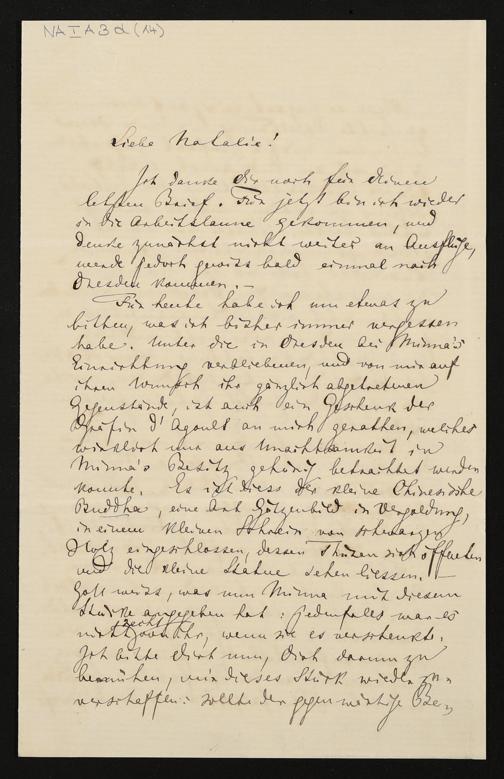 NA I A 3 d (14)
Liebe Natalie!
Ich danke Dir noch für Deinen
letzten Brief. Für jetzt bin ich wieder
in die Arbeitslaune gekommen, und
denke zunächst nicht weiter an Ausflüge,
werde jedoch gewiss bald einmal nach
Dresden kommen. —
Für heute habe ich um etwas zu
bitten, was ich bisher immer vergessen
habe. Unter die in Dresden bei Minna's
Einrichtung verbliebenen, und von mir auf
ihren Wunsch ihr gänzlich abgetretenen
Gegenstände, ist auch ein Geschenk der
Gräfin d'Agoult an mich gerathen, welches
wirklich nur aus Unachtsamkeit in
Minna's Besitz gehörig betrachtet werden
konnte. Es ist diess der kleine Chinesische
Buddha, eine Art Götzenbild in Vergoldung,
in einem kleinen Schrein von schwarzem
Holz eingeschlossen, dessen Thüren sich öffneten
und die kleine Statue sehen liessen. —
Gott weiss, was nun Minna mit diesem
Stücke angegeben hat: jedenfalls war es
nicht recht von ihr, wenn sie es verschenkte.
Ich bitte Dich nun, Dich darum zu
bemühen, mir dieses Stück wieder zu-
verschaffen: sollte der gegenwärtige Be-